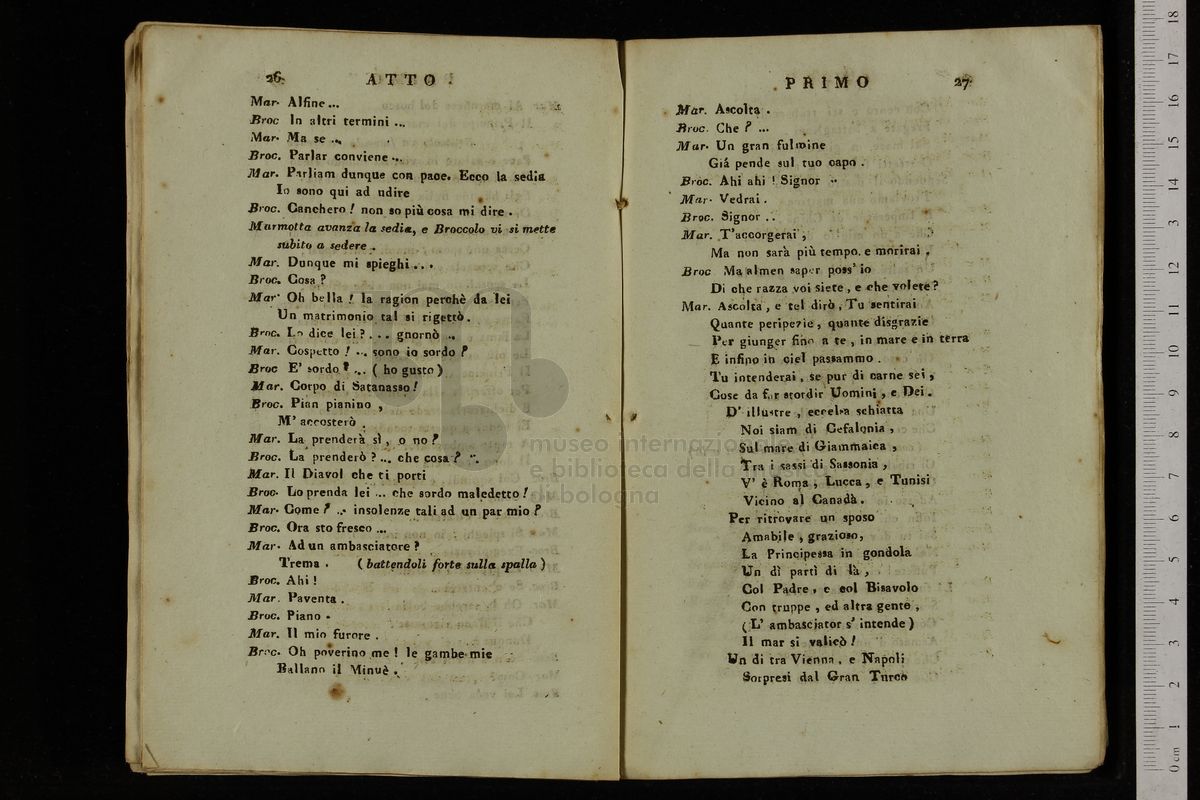 26.
ATTO.
Mar. Alfine...
Broc In altri termini ...
Mar. Ma se ...
Broc. Parlar conviene ...
Mar. Parliam dunque con pace. Ecco la sedia
Io sono qui ad udire
Broc. Canchero! non so più cosa mi dire.
Marmotta avanza la sedia, e Broccolo vi si mette
subito a sedere.
Mar. Dunque mi spieghi...
Broc. Cosa?
Mar. Oh bella! la ragion perchè da lei
Un matrimonio tal si rigettò.
Broc. Lo dice lei?... gnornò ..
Mar. Cospetto! ... sono io sordo?
Broc E' sordo? ... (ho gusto)
Mar. Corpo di Satanasso!
Broc. Pian pianino,
M' accosterò.
Mar. La prenderà sì, o no?
Broc. La prenderò?... che cosa? ..
Mar. Il Diavol che ti porti
Broc. Lo prenda lei ... che sordo maledetto!
Mar. Come? ... insolenze tali ad un par mio?
Broc. Ora sto fresco ...
Mar. Ad un ambasciatore?
Trema. (battendoli forte sulla spalla)
Broc. Ahi!
Mar. Paventa.
Broc. Piano.
Mar. Il mio furore.
Broc. Oh poverino me! le gambe mie
Ballano il Minuè.
PRIMO
27.
Mar. Ascolta.
Broc. Che? ...
Mar. Un gran fulmine
Giá pende sul tuo capo.
Broc. Ahi ahi! Signor ..
Mar. Vedrai.
Broc. Signor ..
Mar. T'accorgerai,
Ma non sarà più tempo, e morirai.
Broc Ma almen saper poss' io
Di che razza voi siete, e che volete?
Mar. Ascolta, e tel dirò, Tu sentirai
Quante peripezie, quante disgrazie
Per giunger fino a te, in mare e in terra
E infino in ciel passammo.
Tu intenderai, se pur di carne sei,
Cose da far stordir Uomini, e Dei.
D' illustre, eccelsa schiatta
Noi siam di Cefalonia,
Sul mare di Giammaica,
Tra i sassi di Sassonia,
V' è Roma, Lucca, e Tunisi
Vicino al Canadà.
Per ritrovare un sposo
Amabile, grazioso,
La Principessa in gondola
Un dì partì di là,
Col Padre, e col Bisavolo
Con truppe, ed altra gente,
(L' ambasciator s' intende)
Il mar si valicò!
Un di tra Vienna, e Napoli
Sorpresi dal Gran Turco
museo internazionale
e biblioteca della musica
di bologna
0 cm 1 2 3 4 5 6 7 8 9 10 11 12 13 14 15 16 17 18